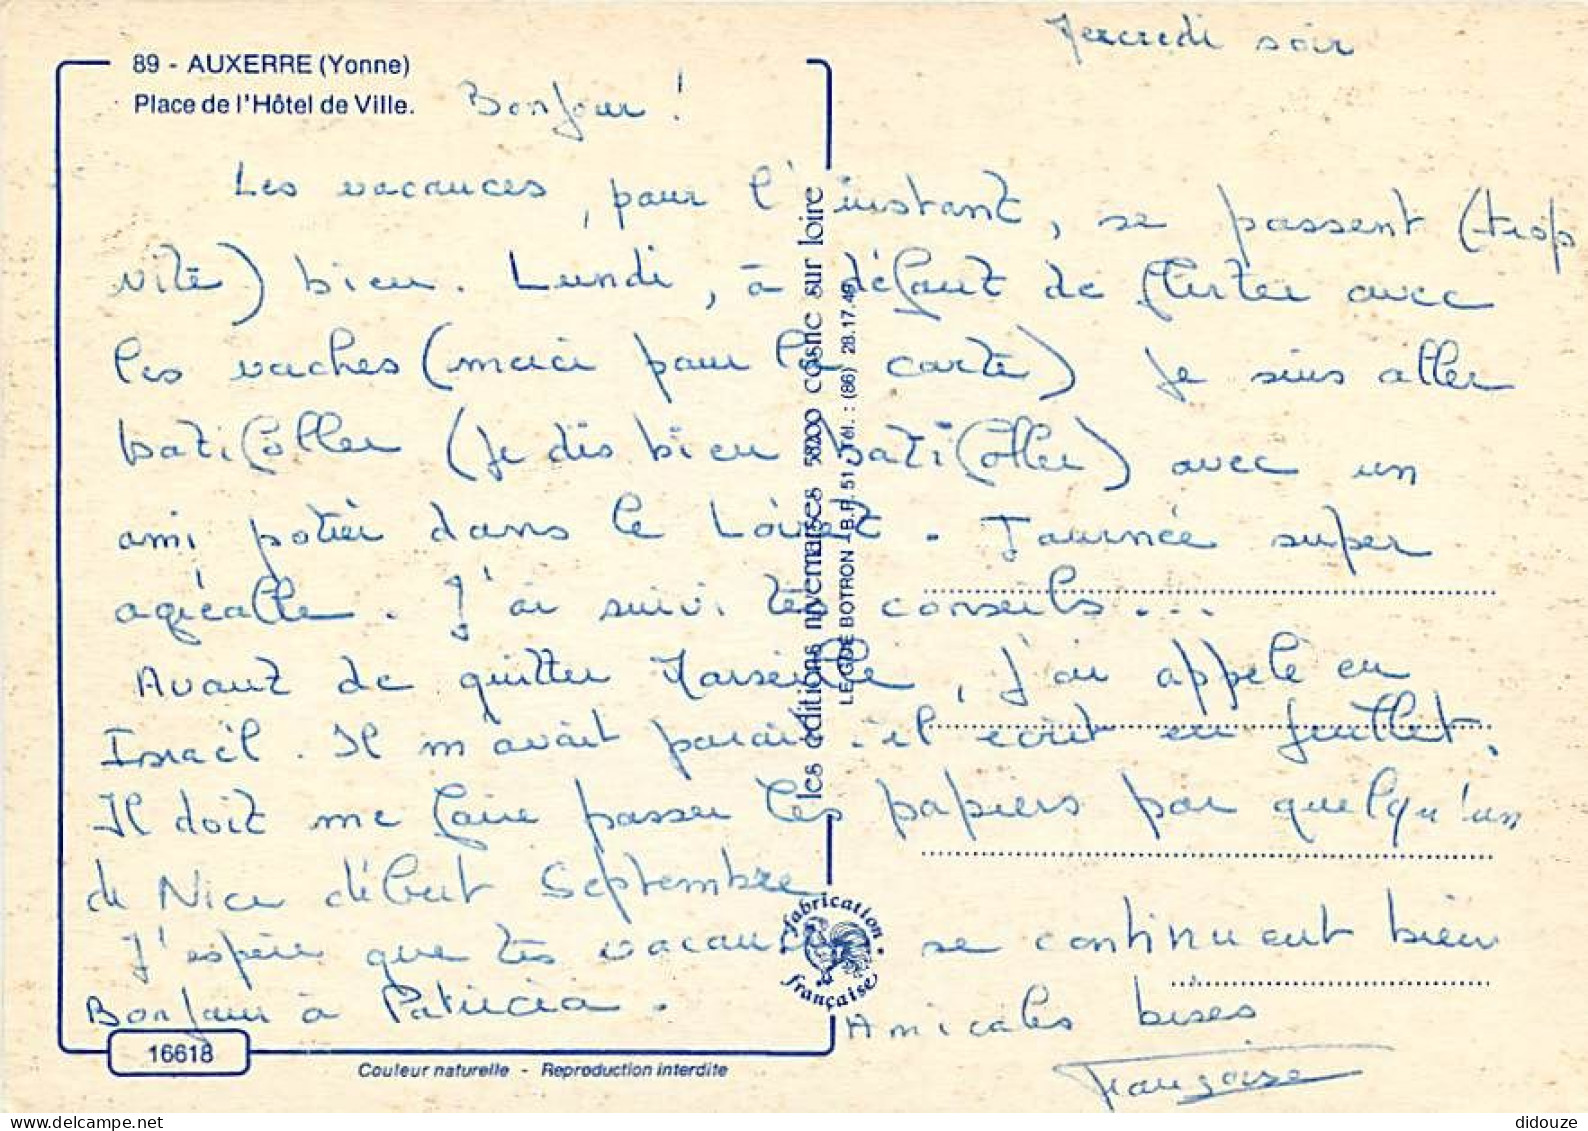 Mercredi soir
89 - AUXERRE (Yonne)
Place de l'Hôtel de Ville.
Bonjour !
Les vacances, pour l'instant, se passent (trop
vite) bien. Lundi, à défaut de flirter avec
les vaches (merci pour la carte) je suis aller
batifoller (je dis bien batifoller) avec un
ami potier dans le Loiret. Journée super
agréable. J'ai suivi tes conseils...
Avant de quitter Marseille, j'ai appelé en
Israël. Il m'avait parait-il écrit en juillet.
Il doit me faire passer les papiers par quelqu'un
de Nice début Septembre
J'espère que tes vacances se continuent bien
Bonjour à Patricia.
Amicales bises
Françoise
les éditions nivernaises 58200 cosne sur loire
LE GDE BOTRON - B.P. 51 - Tél. : (86) 28.17.49
fabrication française
16618
Couleur naturelle - Reproduction interdite
didouze